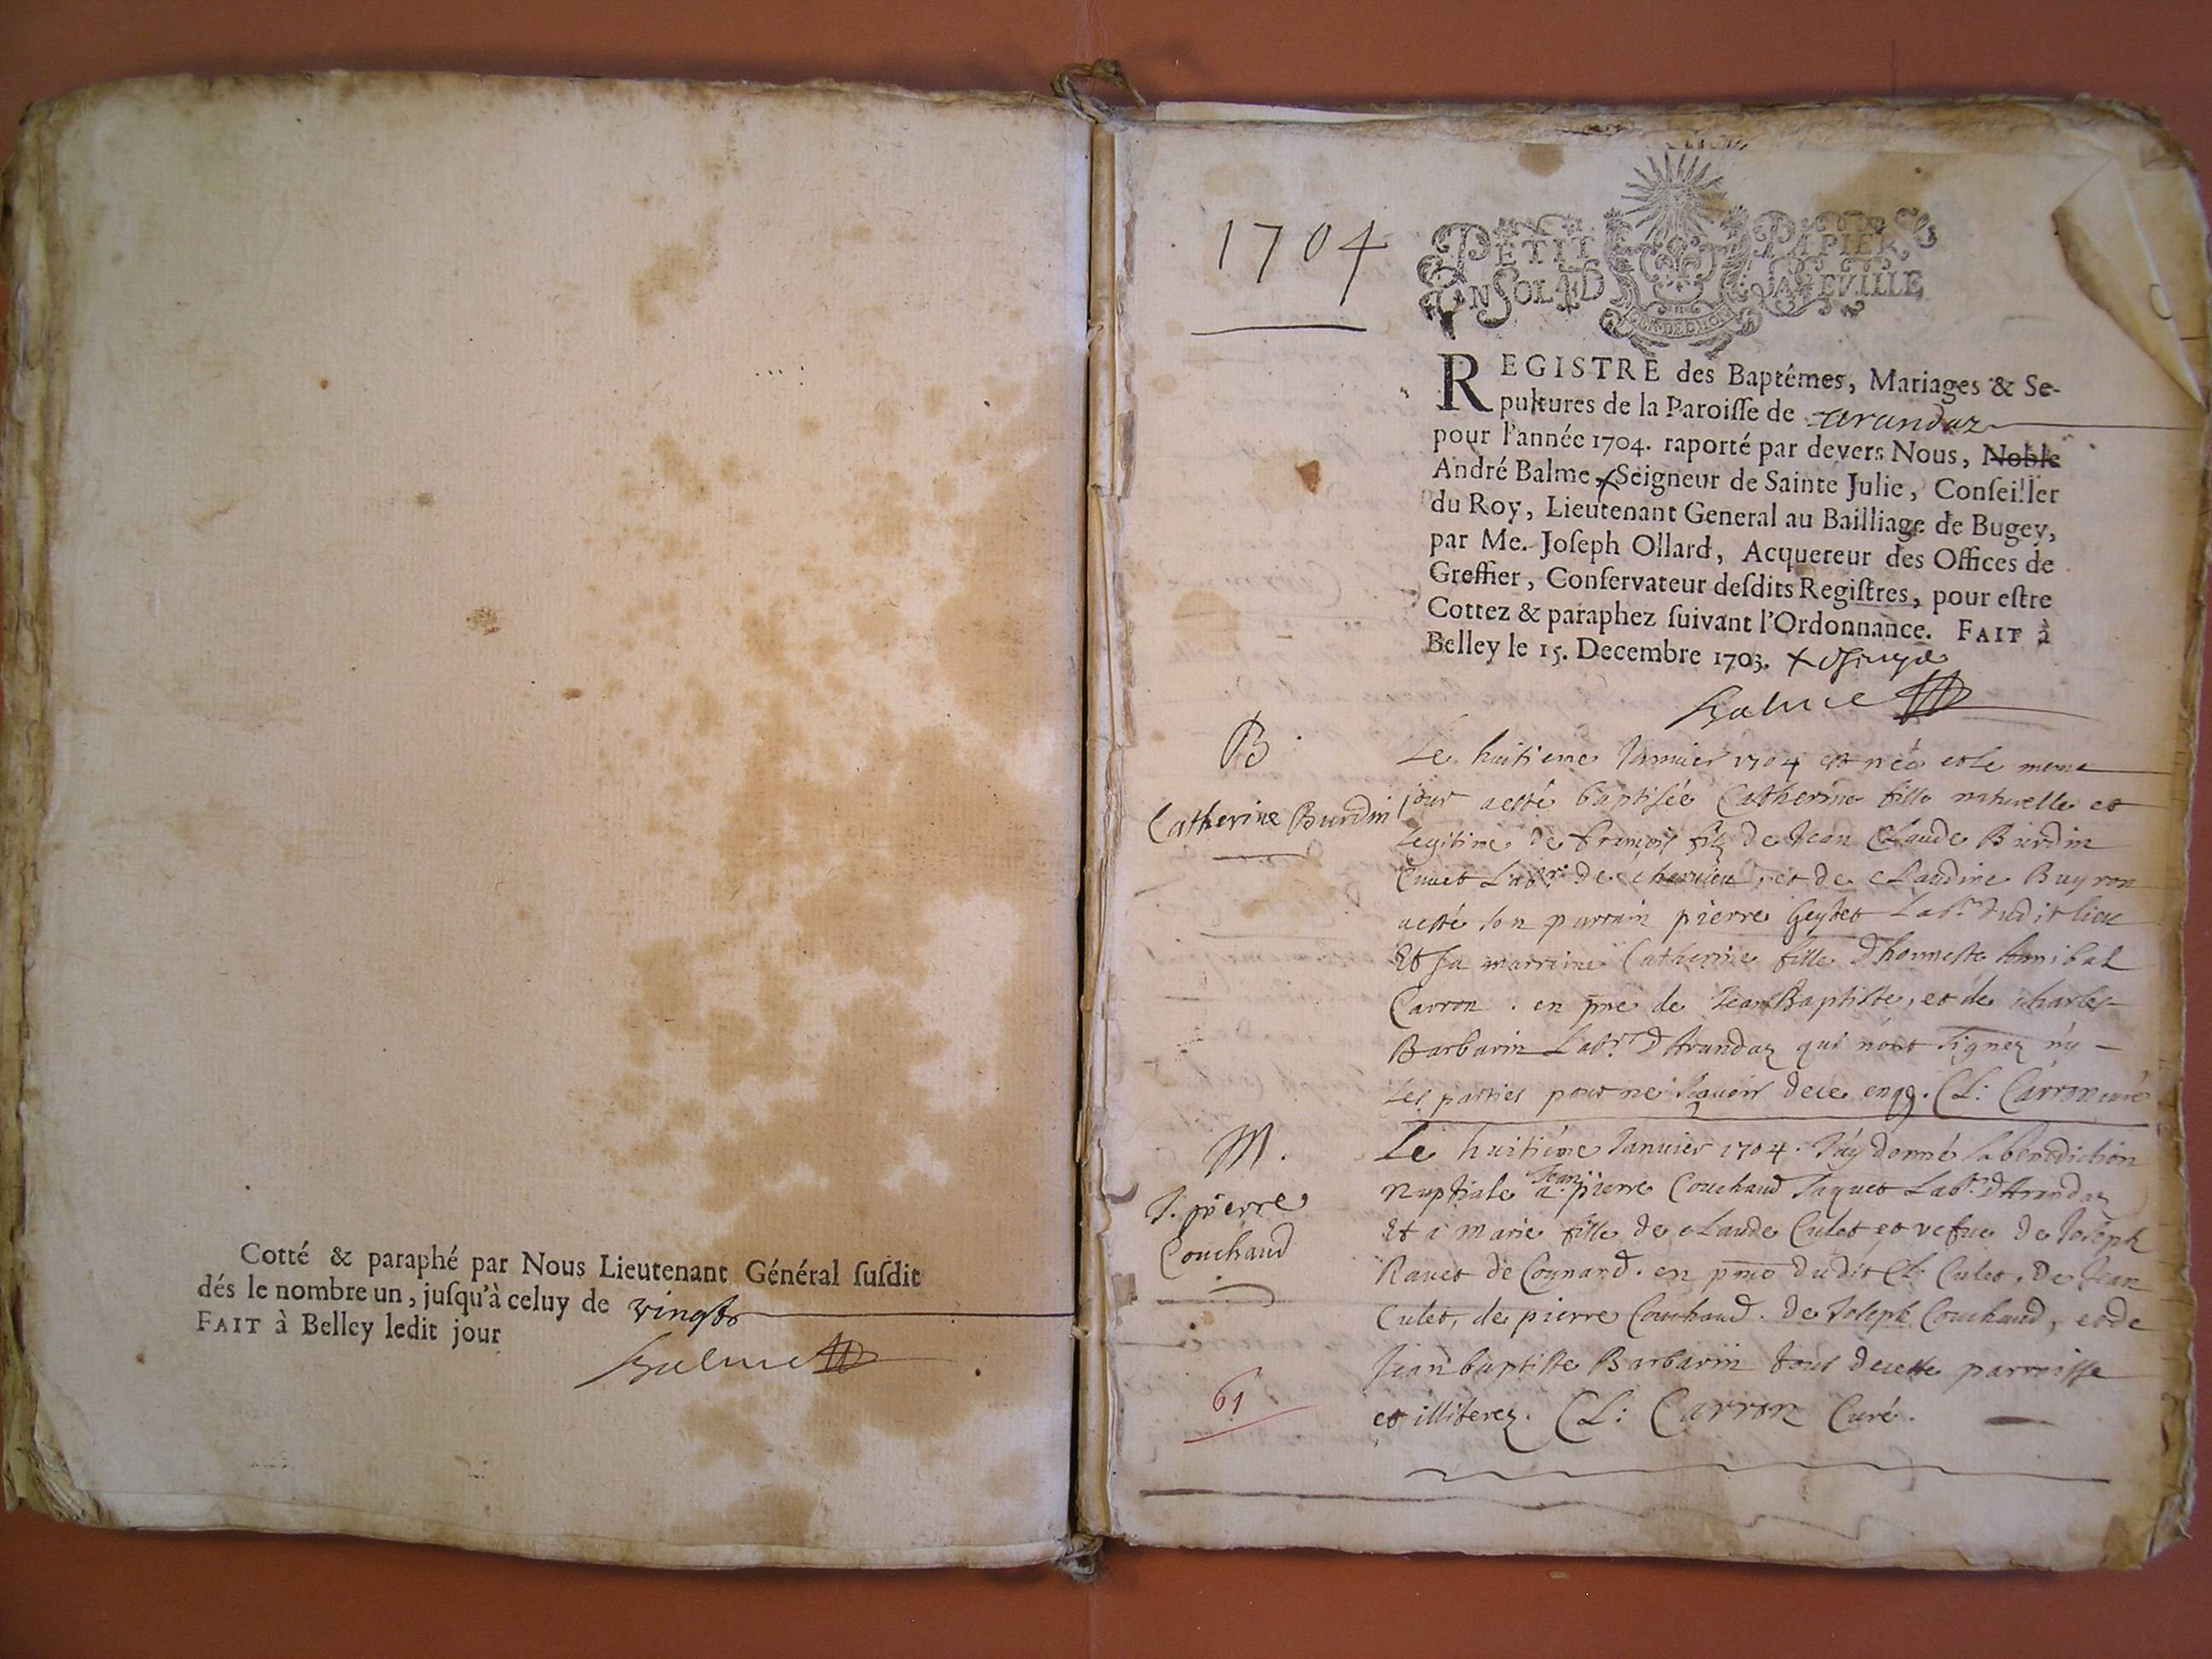 Cotté & paraphé par Nous Lieutenant Général ſuſdit
dés le nombre un, juſqu'à celuy de vingt
FAIT à Belley ledit jour
Balme
1704
PETIT PAPIER
UN SOL 4 D LA FEVILLE
REGISTRE des Baptêmes, Mariages & Se-
pultures de la Paroiſſe de arandaz
pour l'année 1704. raporté par devers Nous, Noble
André Balme, Seigneur de Sainte Julie, Conſeiller
du Roy, Lieutenant General au Bailliage de Bugey,
par Me. Joſeph Ollard, Acquereur des Offices de
Greffier, Conſervateur deſdits Regiſtres, pour eſtre
Cottez & paraphez ſuivant l'Ordonnance. FAIT à
Belley le 15. Decembre 1703.
Balme
B.
Catherine Burdin
Le huitieme Janvier 1704 est née et le meme
jour a esté baptisée Catherine fille naturelle et
legitime de françois filz de Jean Claude Burdin
Labr. de et de Claudine Buyron
a esté son parrain pierre Geydet Labr. dudit lieu
Et sa marraine Catherine fille d'honneste Annibal
Carron. en pnce de Jean Baptiste, et de charles
Barbarin Labr. d'Arandaz qui n'ont signez ny
les parties pour ne sçavoir de ce enq. Cl: Carron curé
M.
J. pierre
Couchaud
Le huitiéme Janvier 1704. J'ay donné la benediction
nuptiale a Jean pierre Couchaud Jaquet Labr. d'Arandaz
Et a Marie fille de Claude Culet et vefve de Joseph
Ravet de Conand. en pnce dudit Cl: Culet, de Jean
Culet, de pierre Couchaud. de Joseph Couchaud, et de
Jean baptiste Barbarin tous de cette parroisse
et illiterez. Cl: Carron Curé.
61